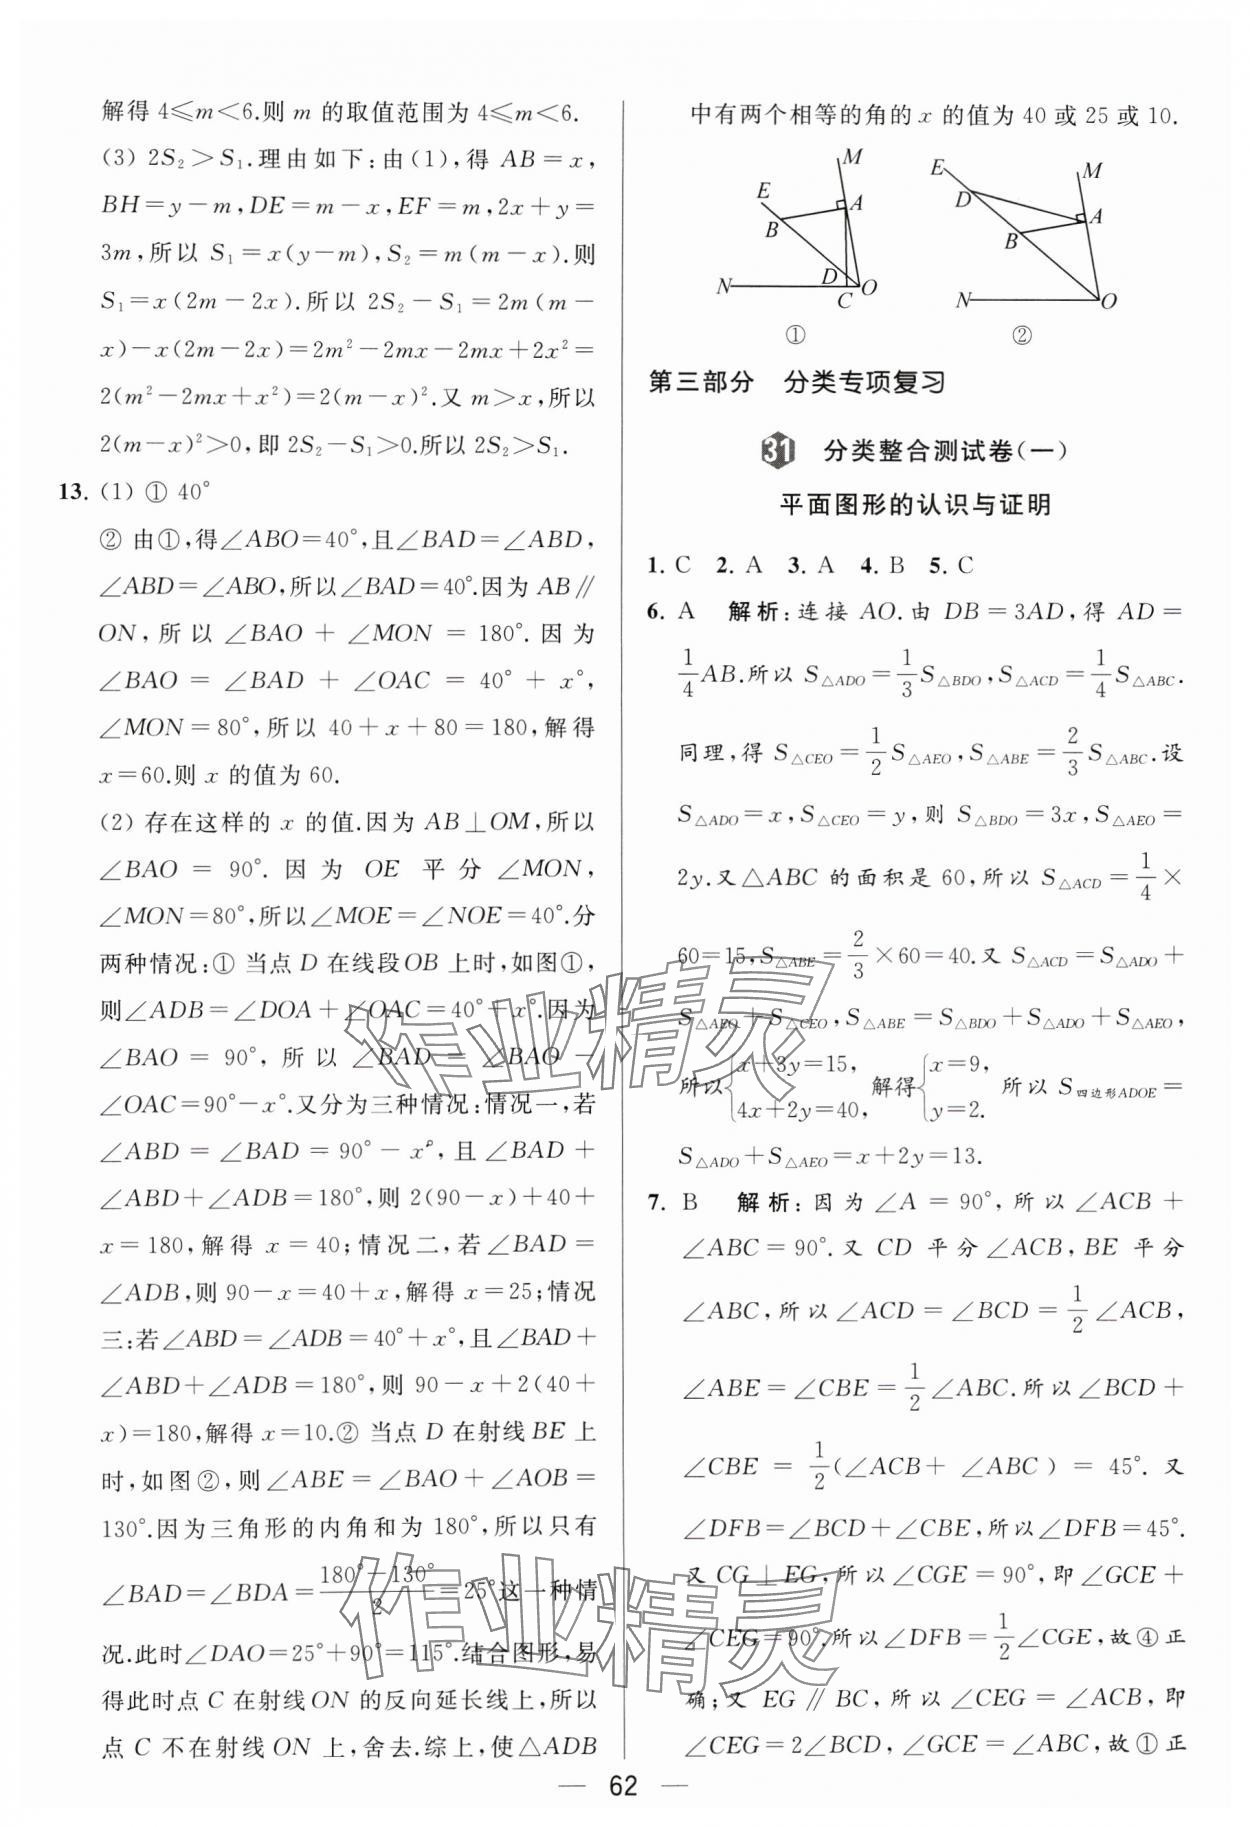 解得 4≤m<6.则 m 的取值范围为 4≤m<6.
(3) 2S₂>S₁.理由如下:由(1),得 AB=x,
BH=y-m,DE=m-x,EF=m,2x+y=
3m,所以 S₁=x(y-m),S₂=m(m-x).则
S₁=x(2m-2x).所以 2S₂-S₁=2m(m-
x)-x(2m-2x)=2m²-2mx-2mx+2x²=
2(m²-2mx+x²)=2(m-x)².又 m>x,所以
2(m-x)²>0,即 2S₂-S₁>0.所以 2S₂>S₁.
13. (1) ① 40°
② 由①,得∠ABO=40°,且∠BAD=∠ABD,
∠ABD=∠ABO,所以∠BAD=40°.因为 AB∥
ON,所以 ∠BAO + ∠MON = 180°.因为
∠BAO = ∠BAD + ∠OAC = 40° + x°,
∠MON=80°,所以 40+x+80=180,解得
x=60.则 x 的值为 60.
(2) 存在这样的 x 的值.因为 AB⊥OM,所以
∠BAO = 90°.因为 OE 平分 ∠MON,
∠MON=80°,所以∠MOE=∠NOE=40°.分
两种情况:① 当点 D 在线段OB 上时,如图①,
则∠ADB=∠DOA+∠OAC=40°+x°.因为
∠BAO = 90°,所以 ∠BAD = ∠BAO -
∠OAC=90°-x°.又分为三种情况:情况一,若
∠ABD = ∠BAD = 90° - x°,且 ∠BAD +
∠ABD+∠ADB=180°,则 2(90-x)+40+
x=180,解得 x=40;情况二,若∠BAD=
∠ADB,则 90-x=40+x,解得 x=25;情况
三:若∠ABD=∠ADB=40°+x°,且∠BAD+
∠ABD+∠ADB=180°,则 90-x+2(40+
x)=180,解得 x=10.② 当点 D 在射线BE 上
时,如图②,则∠ABE=∠BAO+∠AOB=
130°.因为三角形的内角和为 180°,所以只有
∠BAD=∠BDA=\frac{180°-130°}{2}=25°这一种情
况.此时∠DAO=25°+90°=115°.结合图形,易
得此时点 C 在射线ON 的反向延长线上,所以
点 C 不在射线ON 上,舍去.综上,使△ADB
中有两个相等的角的 x 的值为 40 或 25 或 10.
M
E
A
B
D
N
C
O
①
E
D
M
A
B
N
O
②
第三部分 分类专项复习
31 分类整合测试卷(一)
平面图形的认识与证明
1. C 2. A 3. A 4. B 5. C
6. A 解析:连接 AO.由 DB=3AD,得 AD=
\frac{1}{4}AB.所以 S△ADO=\frac{1}{3}S△BDO,S△ACD=\frac{1}{4}S△ABC.
同理,得 S△CEO=\frac{1}{2}S△AEO,S△ABE=\frac{2}{3}S△ABC.设
S△ADO=x,S△CEO=y,则 S△BDO=3x,S△AEO=
2y.又△ABC 的面积是 60,所以 S△ACD=\frac{1}{4}×
60=15,S△ABE=\frac{2}{3}×60=40.又 S△ACD=S△ADO+
S△AEO+S△CEO,S△ABE=S△BDO+S△ADO+S△AEO,
所以{x+3y=15, 4x+2y=40, 解得{x=9, y=2. 所以 S四边形ADOE=
S△ADO+S△AEO=x+2y=13.
7. B 解析:因为 ∠A = 90°,所以 ∠ACB +
∠ABC=90°.又 CD 平分∠ACB,BE 平分
∠ABC,所以∠ACD=∠BCD=\frac{1}{2}∠ACB,
∠ABE=∠CBE=\frac{1}{2}∠ABC.所以∠BCD+
∠CBE = \frac{1}{2}(∠ACB+ ∠ABC) = 45°.又
∠DFB=∠BCD+∠CBE,所以∠DFB=45°.
又 CG⊥EG,所以∠CGE=90°,即∠GCE+
∠CEG=90°.所以∠DFB=\frac{1}{2}∠CGE,故④正
确;又 EG∥BC,所以∠CEG=∠ACB,即
∠CEG=2∠BCD,∠GCE=∠ABC,故①正
作业精灵
作业精灵
— 62 —